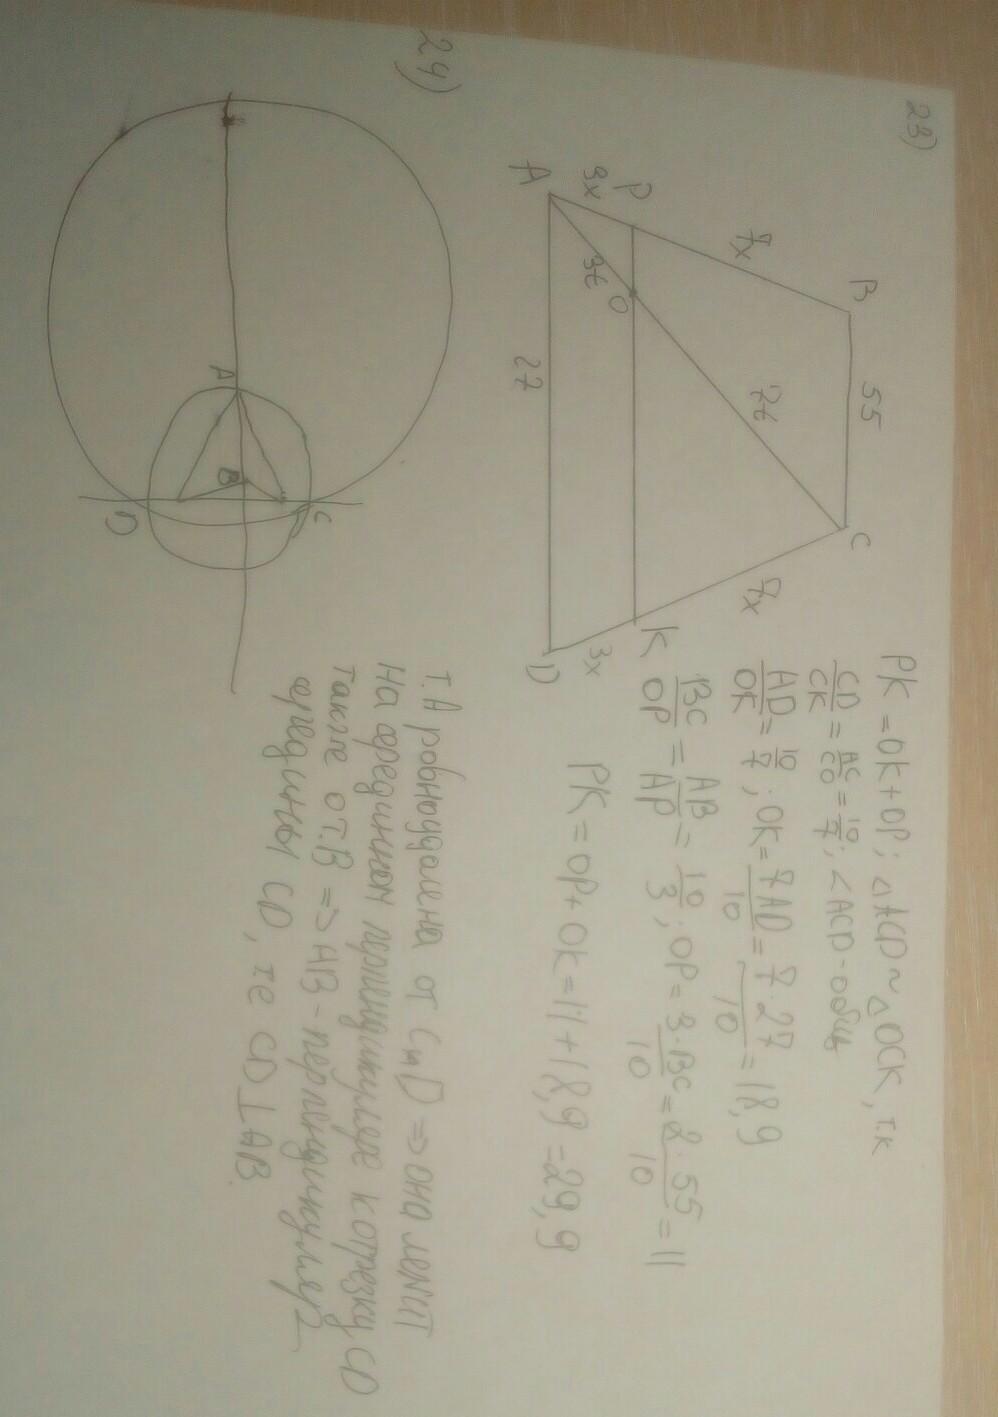 23)
B 55 C
7x 7t 7x
P O K
3x 3t 3x
A 27 D
PK = OK + OP; △ACD ~ △OCK, т.к
CD/CK = AC/CO = 10/7; ∠ACD - общ
AD/OK = 10/7; OK = 7AD/10 = 7·27/10 = 18,9
BC/OP = AB/AP = 10/3; OP = 3·BC/10 = 2·55/10 = 11
PK = OP + OK = 11 + 18,9 = 29,9
24)
A B C D
т.А равноудалена от C и D => она лежит
на срединном перпендикуляре к отрезку CD
также от.B => AB - перпендикуляр
середины CD, те CD ⊥ AB.